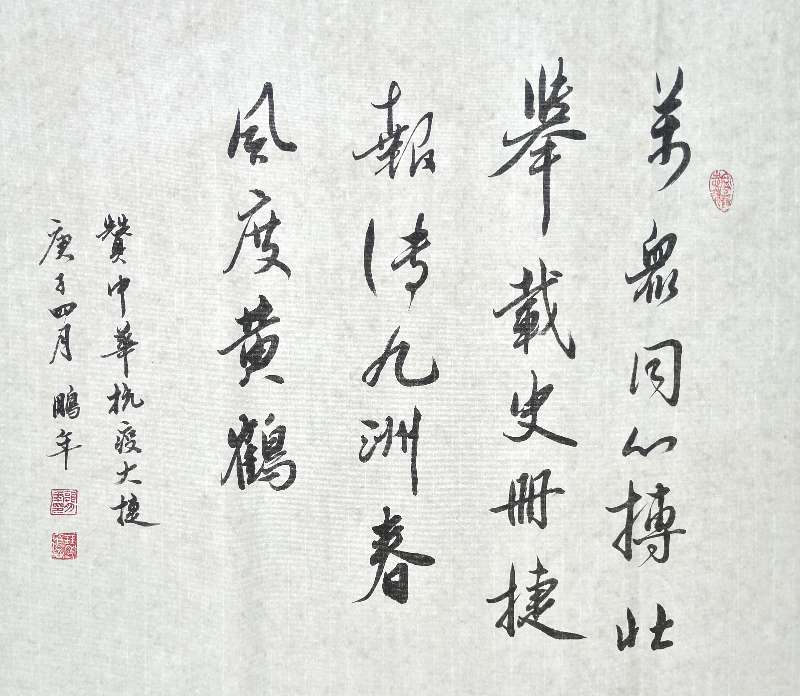 萬眾同心搏壯
舉載史冊捷
報傳九洲春
風度黄鶴
贊中華抗疫大捷
庚子四月鵬年